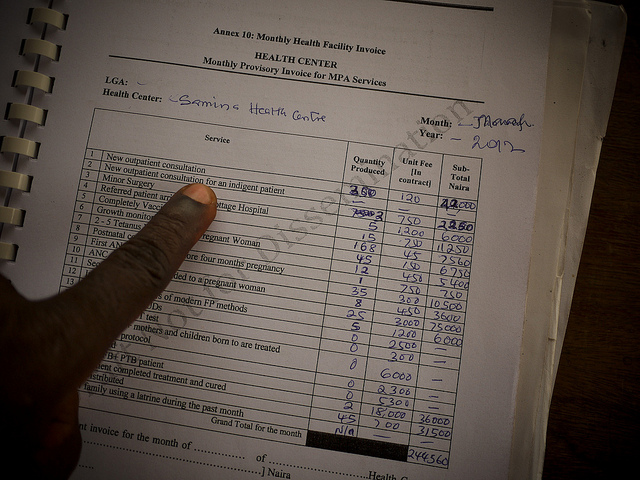 Annex 10: Monthly Health Facility Invoice
HEALTH CENTER
Monthly Provisory Invoice for MPA Services
LGA: -
Health Center: - Samina Health Centre
Month: -
Year: - 2012
Service Quantity Produced Unit Fee [In contract] Sub-Total Naira
1 New outpatient consultation 120
2 New outpatient consultation for an indigent patient
3 Minor Surgery 750
4 Referred patient ottage Hospital 5 1200 6000
5 Completely Vacc 15 750 11250
6 Growth monito 168 45 7560
7 2 - 5 Tetanus regnant Woman 45 150 6750
8 Postnatal 12 450 5400
9 First AN ore four months pregnancy 1 750 750
10 ANC 35 300 10500
11 Se ded to a pregnant woman 8 450 3600
25 3000 75000
s of modern FP methods 5 1200 6000
Ds 0 2500 —
test 0 300 —
mothers and children born to are treated
protocol 0 6000 —
B+ PTB patient 0 2300 —
ent completed treatment and cured 0 5300 —
istributed 2 18,000 36000
family using a latrine during the past month 45 700 31500
Grand Total for the month N/A — —
244560
nt invoice for the month of of
] Naira Health C